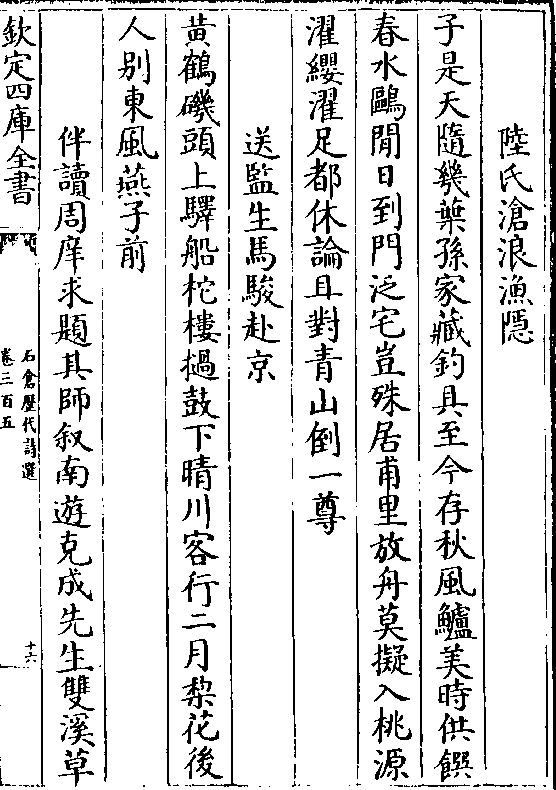 陸氏滄浪漁隠
子是天隨幾葉孫家藏釣具至今存秋風鱸美時供饌
春水鷗閒日到門泛宅豈殊居甫里放舟莫擬入桃源
濯纓濯足都休論且對青山倒一尊
送監生馬駿赴京
黄鶴磯頭上驛船柁樓撾鼓下晴川客行二月梨花後
人别東風燕子前
伴讀周庠求題其師叙南遊克成先生雙溪草
欽定四庫全書
石倉歴代詩選
卷三百五
十六